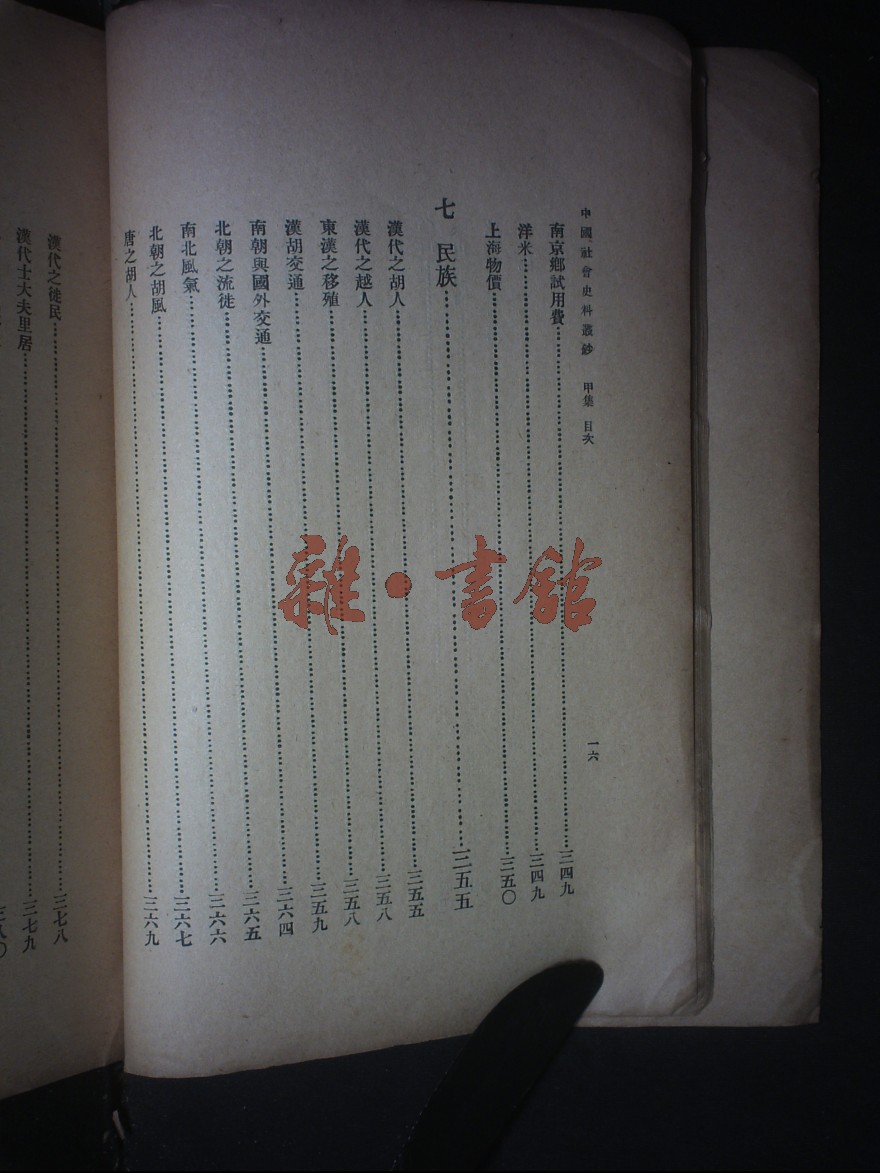 中國社會史料叢鈔 甲集 目次 一六
南京鄉試用費……三四九
洋米……三四九
上海物價……三五〇
七 民族……三五五
漢代之胡人……三五五
漢代之越人……三五八
東漢之移殖……三五八
漢胡交通……三五九
南朝與國外交通……三六四
北朝之流徙……三六五
南北風氣……三六六
北朝之胡風……三六七
唐之胡人……三六九
漢代之徙民……三七八
漢代士大夫里居……三七九
三八〇
雜·書館